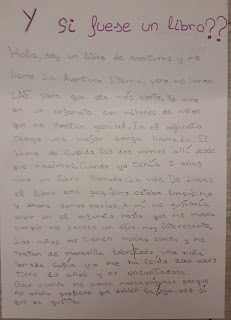 Y si fuese un libro??
Hola, soy un libro de aventuras y me
llamo La Aventura Eterna, pero me llaman
LAE para que sea más corto. Yo vivo
en un orfanato con millones de niños
que me tratan genial. En el orfanato
tengo una mejor amiga llamada El
libro de Cupido las dos vivimos allí desde
que nacimos. Cuando yo tenía 5 años
vino un libro llamado: La vida de Lucas
el libro era guapísimo estaba limpísimo
y ahora somos novios. A mí me gustaría
vivir en el orfanato hasta que me muera
porque me parece un sitio muy interesante.
Los niños me tienen mucho cariño y me
tratan de maravilla sobre todo una niña
llamada Sofía ya me ha leído 200 veces
tiene 10 años y es encantadora.
Odio cuando me ponen porque
me que la eso sí
que da gustito.